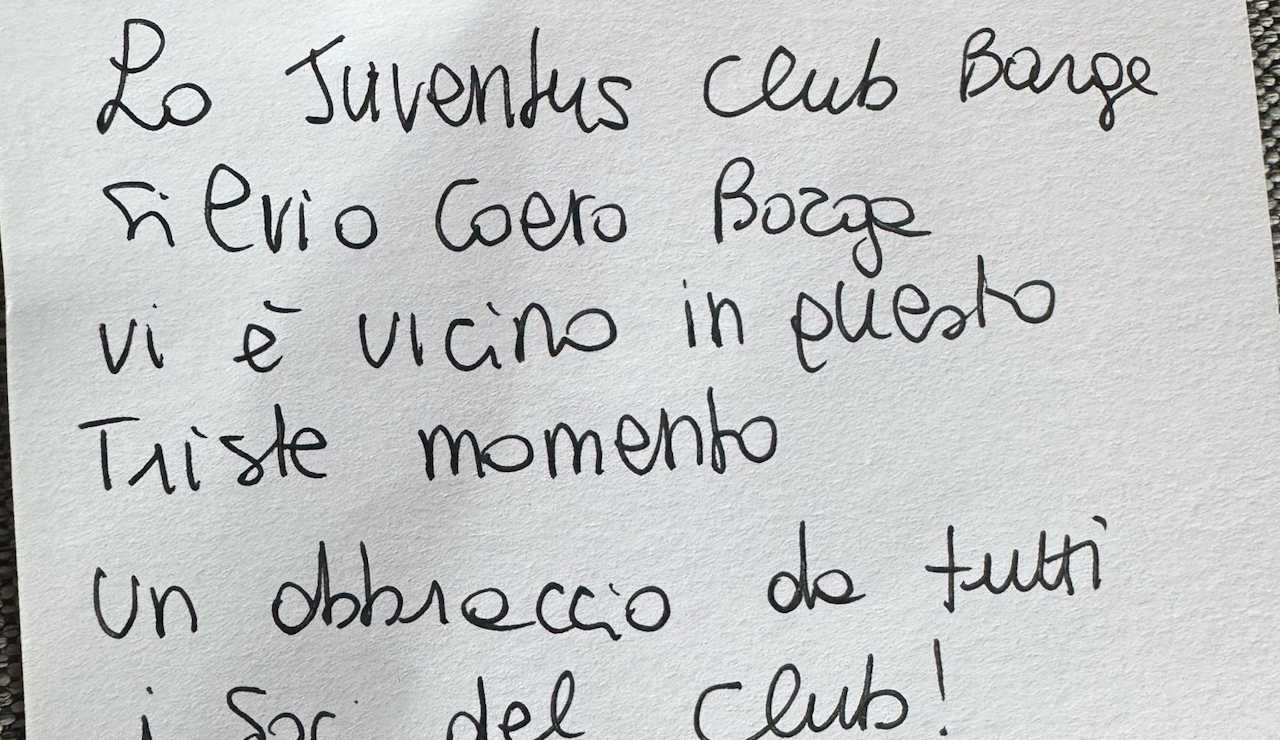 Lo Juventus club Barge
Silvio Coero Borga
vi è vicino in questo
Triste momento
un abbraccio da tutti
i Soci del club!